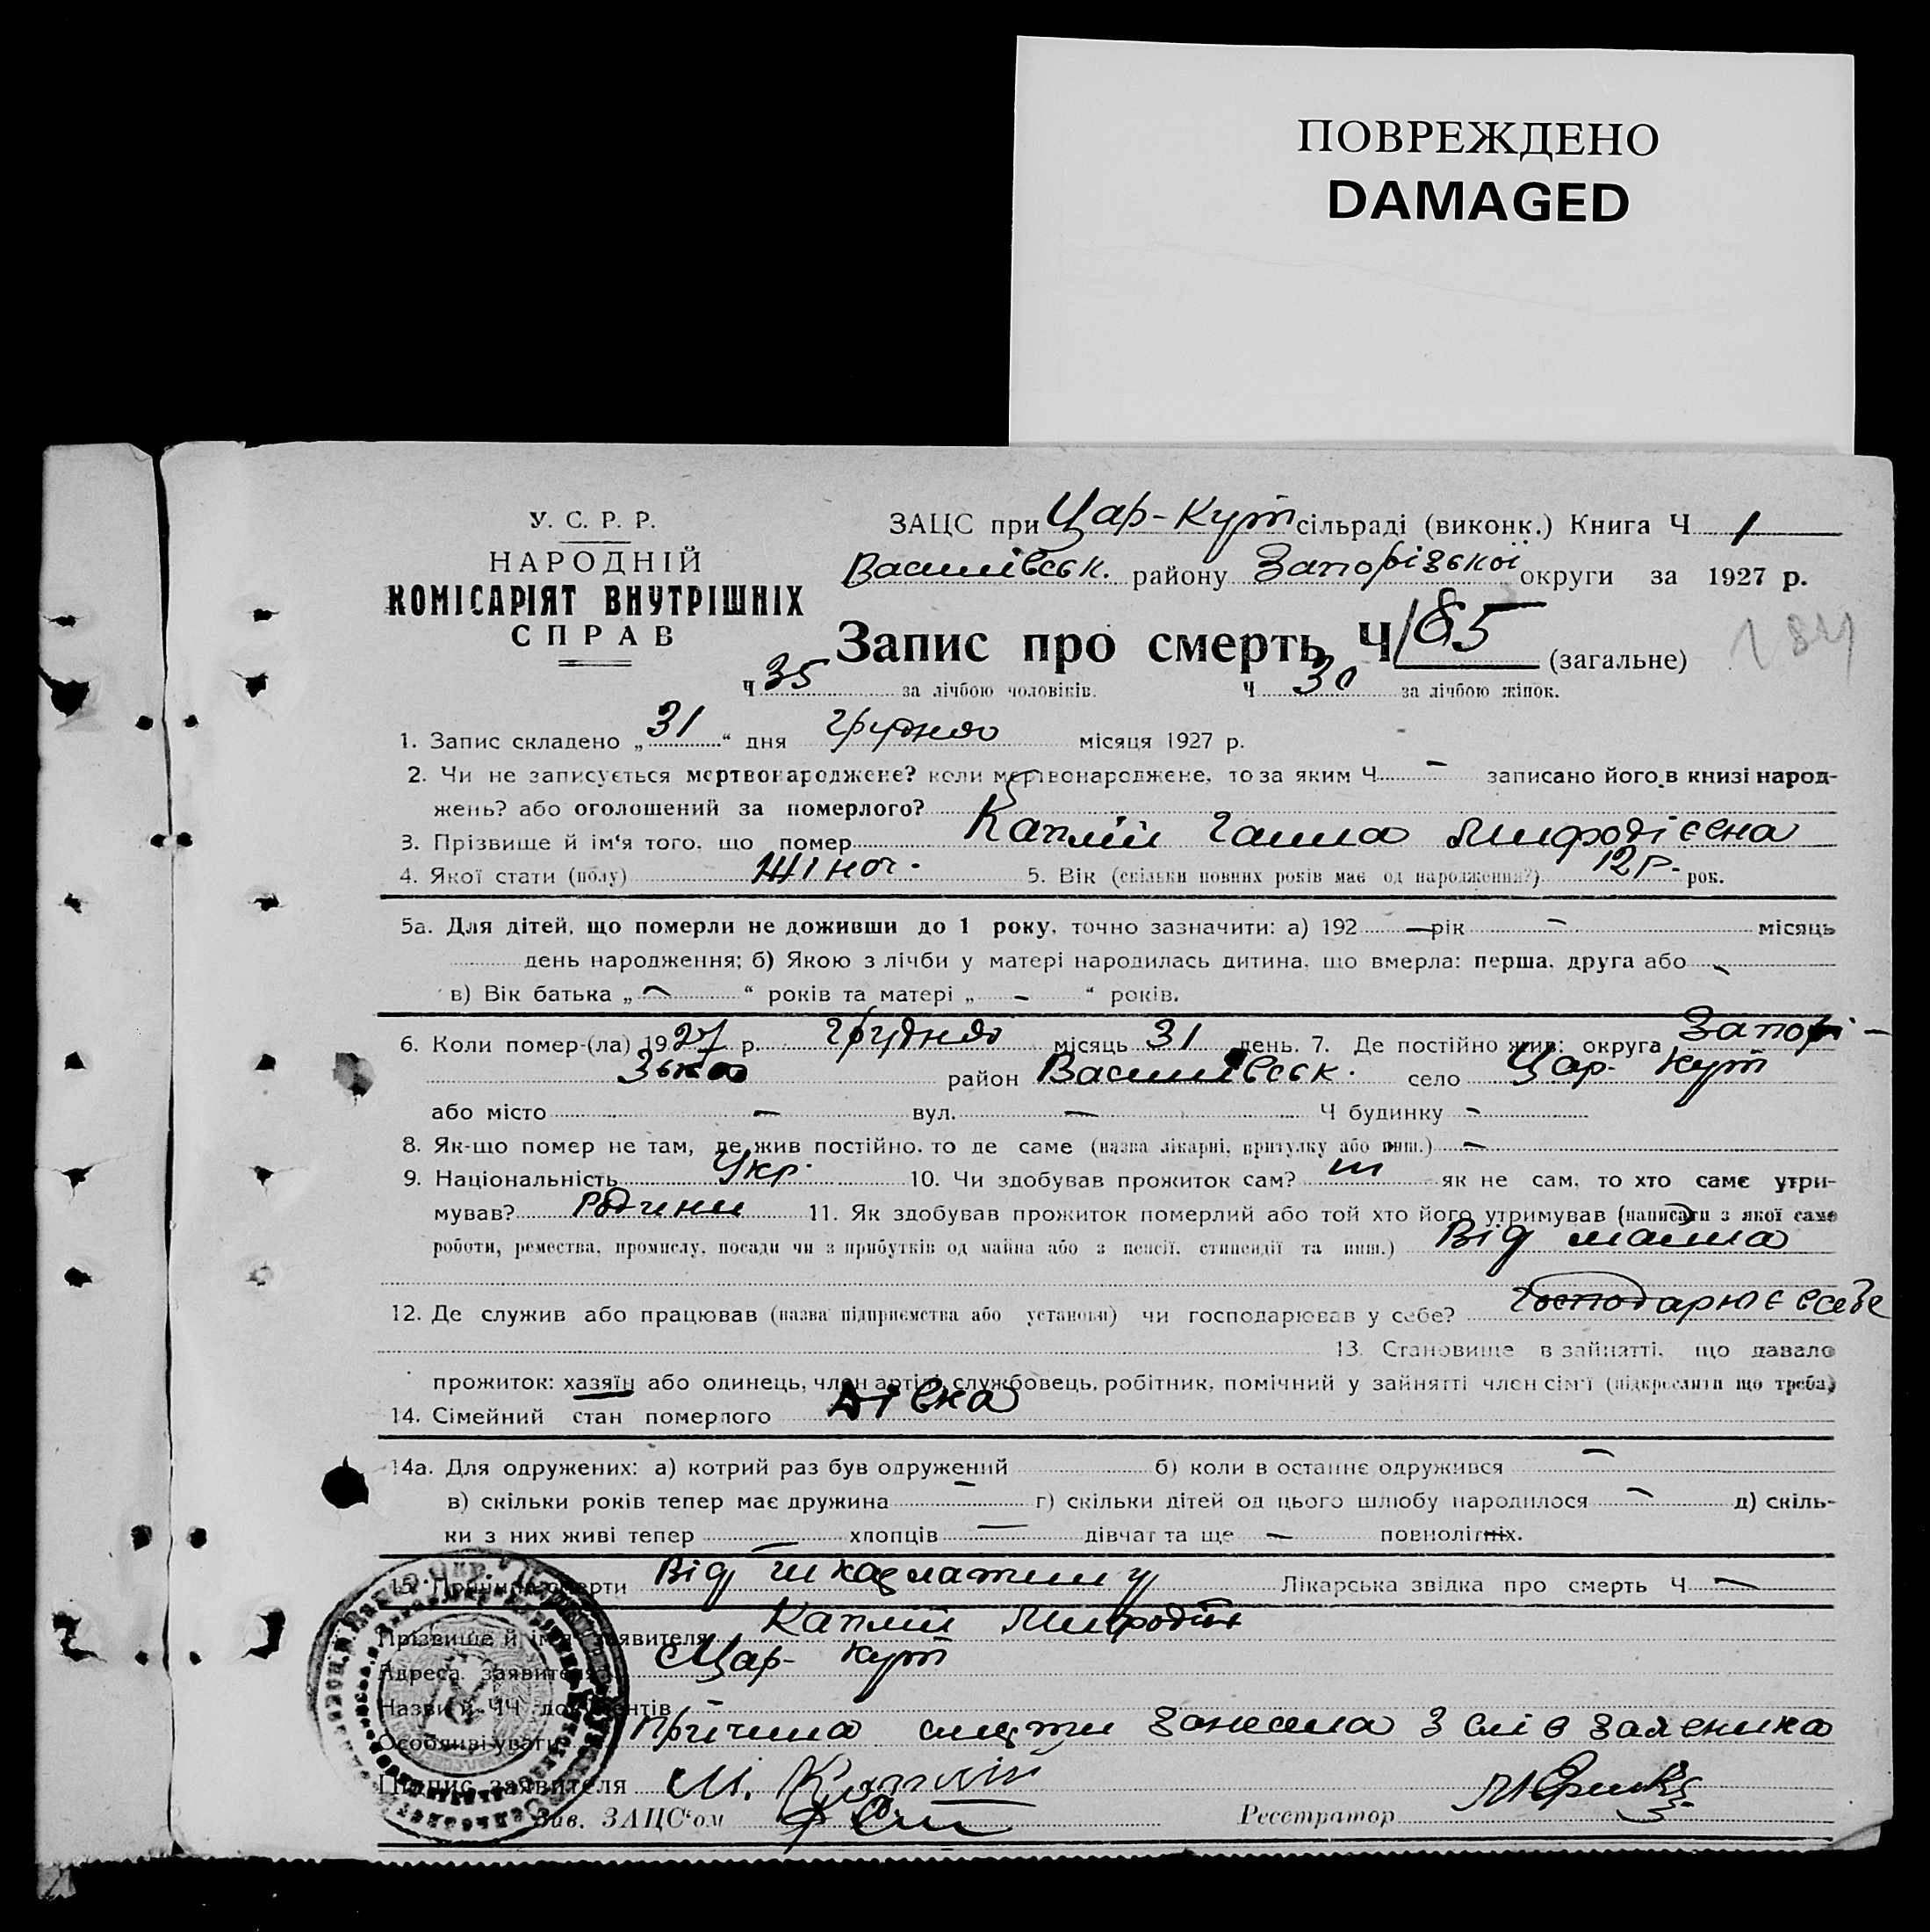 ПОВРЕЖДЕНО
DAMAGED
У. С. Р. Р.
НАРОДНІЙ
КОМІСАРІЯТ ВНУТРІШНІХ
СПРАВ
ЗАЦС при Цар-Кут сільраді (виконк.) Книга Ч 1
Василівськ. району Запорізької округи за 1927 р.
Запис про смерть Ч 185 (загальне)
184
Ч 35 за лічбою чоловіків. Ч 30 за лічбою жінок.
1. Запис складено „31“ дня грудня місяця 1927 р.
2. Чи не записується мертвонароджене? коли мертвонароджене, то за яким Ч – записано його в книзі народ-
жень? або оголошений за померлого?
3. Прізвище й ім'я того, що помер Каплій Ганна Мифодієвна
4. Якої стати (полу) жіноч. 5. Вік (скільки повних років має од народження?) 12 р. рок.
5а. Для дітей, що померли не доживши до 1 року, точно зазначити: а) 192 – рік – місяць
день народження; б) Якою з лічби у матері народилась дитина, що вмерла: перша, друга або –
в) Вік батька „ – “ років та матері „ – “ років.
6. Коли помер-(ла) 1927 р. грудня місяць 31 день. 7. Де постійно жив: округа Запорі-
зька район Василівськ. село Цар-Кут
або місто – вул. – Ч будинку –
8. Як-що помер не там, де жив постійно, то де саме (назва лікарні, притулку або инш.) –
9. Національність Укр. 10. Чи здобував прожиток сам? ні як не сам, то хто саме утри-
мував? Родини 11. Як здобував прожиток померлий або той хто його утримував (написати з якої саме
роботи, ремества, промислу, посади чи з прибутків од майна або з пенсії, стипендії та инш.) Від майна
12. Де служив або працював (назва підприємства або установи) чи господарював у себе? господарює в себе
13. Становище в зайнятті, що давало
прожиток: хазяїн або одинець, член артілі, службовець, робітник, помічний у зайнятті член сім'ї (підкреслити що треба)
14. Сімейний стан померлого дівка
14а. Для одружених: а) котрий раз був одружений б) коли в останнє одружився –
в) скільки років тепер має дружина – г) скільки дітей од цього шлюбу народилося – д) скіль-
ки з них живі тепер – хлопців – дівчат та ще – повнолітніх.
15. Причина смерти Від Лікарська звідка про смерть Ч –
Прізвище й ім'я заявителя Каплій Мифодій
Адреса заявителя Цар-Кут
Назви й ЧЧ документів –
Особливі уваги Прічина смерти занесена з слів заявника
Підпис заявителя М. Каплій
Зав. ЗАЦС'ом Реєстратор